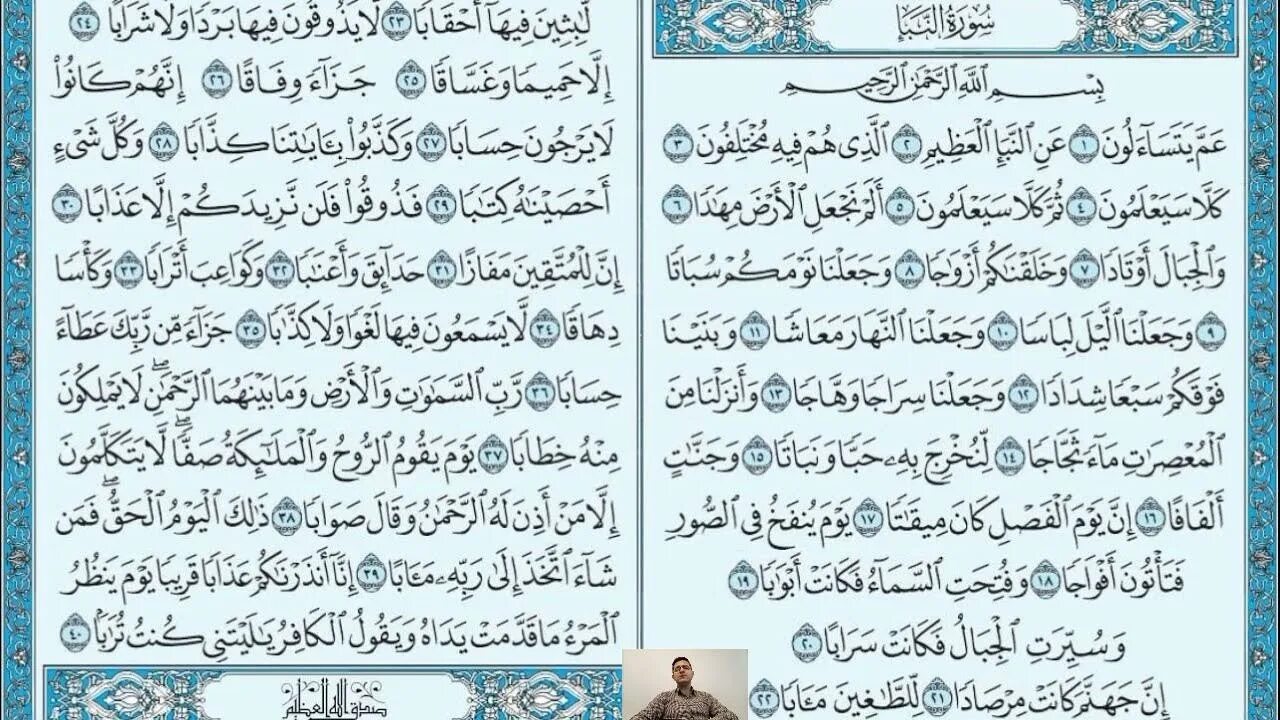 سُورَةُ النَّبَإِ
بِسْمِ اللَّهِ الرَّحْمَٰنِ الرَّحِيمِ
عَمَّ يَتَسَآءَلُونَ ١ عَنِ النَّبَإِ الْعَظِيمِ ٢ الَّذِى هُمْ فِيهِ مُخْتَلِفُونَ ٣
كَلَّا سَيَعْلَمُونَ ٤ ثُمَّ كَلَّا سَيَعْلَمُونَ ٥ أَلَمْ نَجْعَلِ الْأَرْضَ مِهَٰدًا ٦
وَالْجِبَالَ أَوْتَادًا ٧ وَخَلَقْنَاكُمْ أَزْوَاجًا ٨ وَجَعَلْنَا نَوْمَكُمْ سُبَاتًا
٩ وَجَعَلْنَا الَّيْلَ لِبَاسًا ١٠ وَجَعَلْنَا النَّهَارَ مَعَاشًا ١١ وَبَنَيْنَا
فَوْقَكُمْ سَبْعًا شِدَادًا ١٢ وَجَعَلْنَا سِرَاجًا وَهَّاجًا ١٣ وَأَنزَلْنَا مِنَ
الْمُعْصِرَٰتِ مَآءً ثَجَّاجًا ١٤ لِّنُخْرِجَ بِهِۦ حَبًّا وَنَبَاتًا ١٥ وَجَنَّٰتٍ
أَلْفَافًا ١٦ إِنَّ يَوْمَ الْفَصْلِ كَانَ مِيقَٰتًا ١٧ يَوْمَ يُنفَخُ فِى الصُّورِ
فَتَأْتُونَ أَفْوَاجًا ١٨ وَفُتِحَتِ السَّمَآءُ فَكَانَتْ أَبْوَٰبًا ١٩
وَسُيِّرَتِ الْجِبَالُ فَكَانَتْ سَرَابًا ٢٠
إِنَّ جَهَنَّمَ كَانَتْ مِرْصَادًا ٢١ لِّلطَّٰغِينَ مَـَٔابًا ٢٢
لَّٰبِثِينَ فِيهَآ أَحْقَابًا ٢٣ لَا يَذُوقُونَ فِيهَا بَرْدًا وَلَا شَرَابًا ٢٤
إِلَّا حَمِيمًا وَغَسَّاقًا ٢٥ جَزَآءً وِفَاقًا ٢٦ إِنَّهُمْ كَانُوا۟
لَا يَرْجُونَ حِسَابًا ٢٧ وَكَذَّبُوا۟ بِـَٔايَٰتِنَا كِذَّابًا ٢٨ وَكُلَّ شَىْءٍ
أَحْصَيْنَٰهُ كِتَٰبًا ٢٩ فَذُوقُوا۟ فَلَن نَّزِيدَكُمْ إِلَّا عَذَابًا ٣٠
إِنَّ لِلْمُتَّقِينَ مَفَازًا ٣١ حَدَآئِقَ وَأَعْنَٰبًا ٣٢ وَكَوَاعِبَ أَتْرَابًا ٣٣ وَكَأْسًا
دِهَاقًا ٣٤ لَّا يَسْمَعُونَ فِيهَا لَغْوًا وَلَا كِذَّٰبًا ٣٥ جَزَآءً مِّن رَّبِّكَ عَطَآءً
حِسَابًا ٣٦ رَّبِّ السَّمَٰوَٰتِ وَالْأَرْضِ وَمَا بَيْنَهُمَا الرَّحْمَٰنِ ۖ لَا يَمْلِكُونَ
مِنْهُ خِطَابًا ٣٧ يَوْمَ يَقُومُ الرُّوحُ وَالْمَلَٰٓئِكَةُ صَفًّا ۖ لَّا يَتَكَلَّمُونَ
إِلَّا مَنْ أَذِنَ لَهُ الرَّحْمَٰنُ وَقَالَ صَوَابًا ٣٨ ذَٰلِكَ الْيَوْمُ الْحَقُّ ۖ فَمَن
شَآءَ اتَّخَذَ إِلَىٰ رَبِّهِۦ مَـَٔابًا ٣٩ إِنَّآ أَنذَرْنَٰكُمْ عَذَابًا قَرِيبًا يَوْمَ يَنظُرُ
الْمَرْءُ مَا قَدَّمَتْ يَدَاهُ وَيَقُولُ الْكَافِرُ يَٰلَيْتَنِى كُنتُ تُرَٰبًۢا ٤٠
صدق الله العظيم